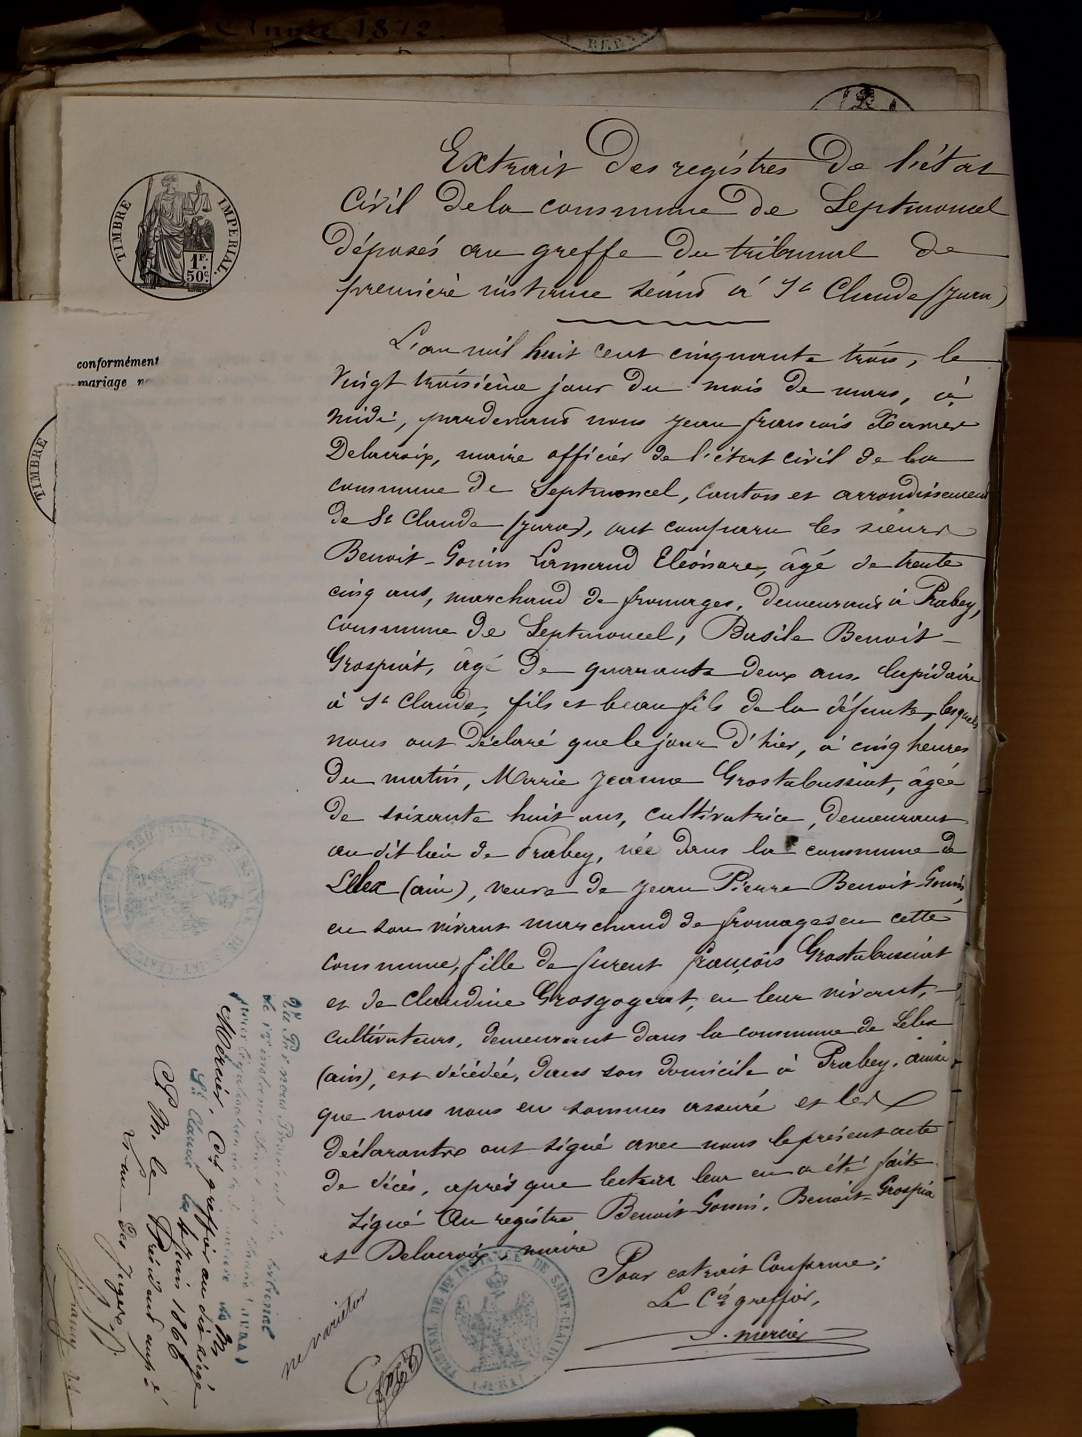 Année 1872.
TIMBRE IMPERIAL.
1F.
50c.
conformément
mariage
TIMBRE
Extrait des registres de l'état
Civil dela commune de Septmoncel
déposés au greffe du tribunal de
première instance séant à St Claude (Jura)
L'an mil huit cent cinquante trois, le
vingt troisième jour du mois de mars, à
midi, pardevant nous Jean françois Xavier
Delacroix, maire officier de l'état civil de la
commune de Septmoncel, canton et arrondissement
de St Claude (Jura), ont comparu les sieurs
Benoit-Gonin Armand Eléonore, âgé de trente
cinq ans, marchand de fromages, demeurant à Prabey,
commune de Septmoncel, Basile Benoit-
Grospiat, âgé de quarante deux ans lapidaire
à St Claude, fils et beau fils de la défunte, lesquels
nous ont déclaré que le jour d'hier, à cinq heures
du matin, Marie Jeanne Grostabussiat, âgée
de soixante huit ans, cultivatrice, demeurant
au dit lieu de Prabey, née dans la commune de
Lélex (ain), veuve de Jean Pierre Benoit-Gonin,
en son vivant marchand de fromages en cette
commune, fille de furent françois Grostabussiat
et de Claudine Grosgogeat, en leur vivant,
cultivateurs, demeurant dans la commune de Lélex
(ain), est décédée, dans son domicile à Prabey, ainsi
que nous nous en sommes assuré et les
déclarants ont signé avec nous le présent acte
de décès, après que lecture leur en a été faite
Signé Au registre, Benoit-Gonin, Benoit-Grospia
et Delacroix, maire
Pour extrait Conforme;
Le Cis greffier,
J. mercier
ne varietur
TRIBUNAL DE 1re INSTANCE DE SAINT-CLAUDE
(JURA)
Vu Par nous Président du tribunal
de première instance
pour légalisation de la signature de Mr
Mercier, Cis greffier au dit siège
St Claude le 4 Juin 1866
P. M. le Président empé
l'un des Juges